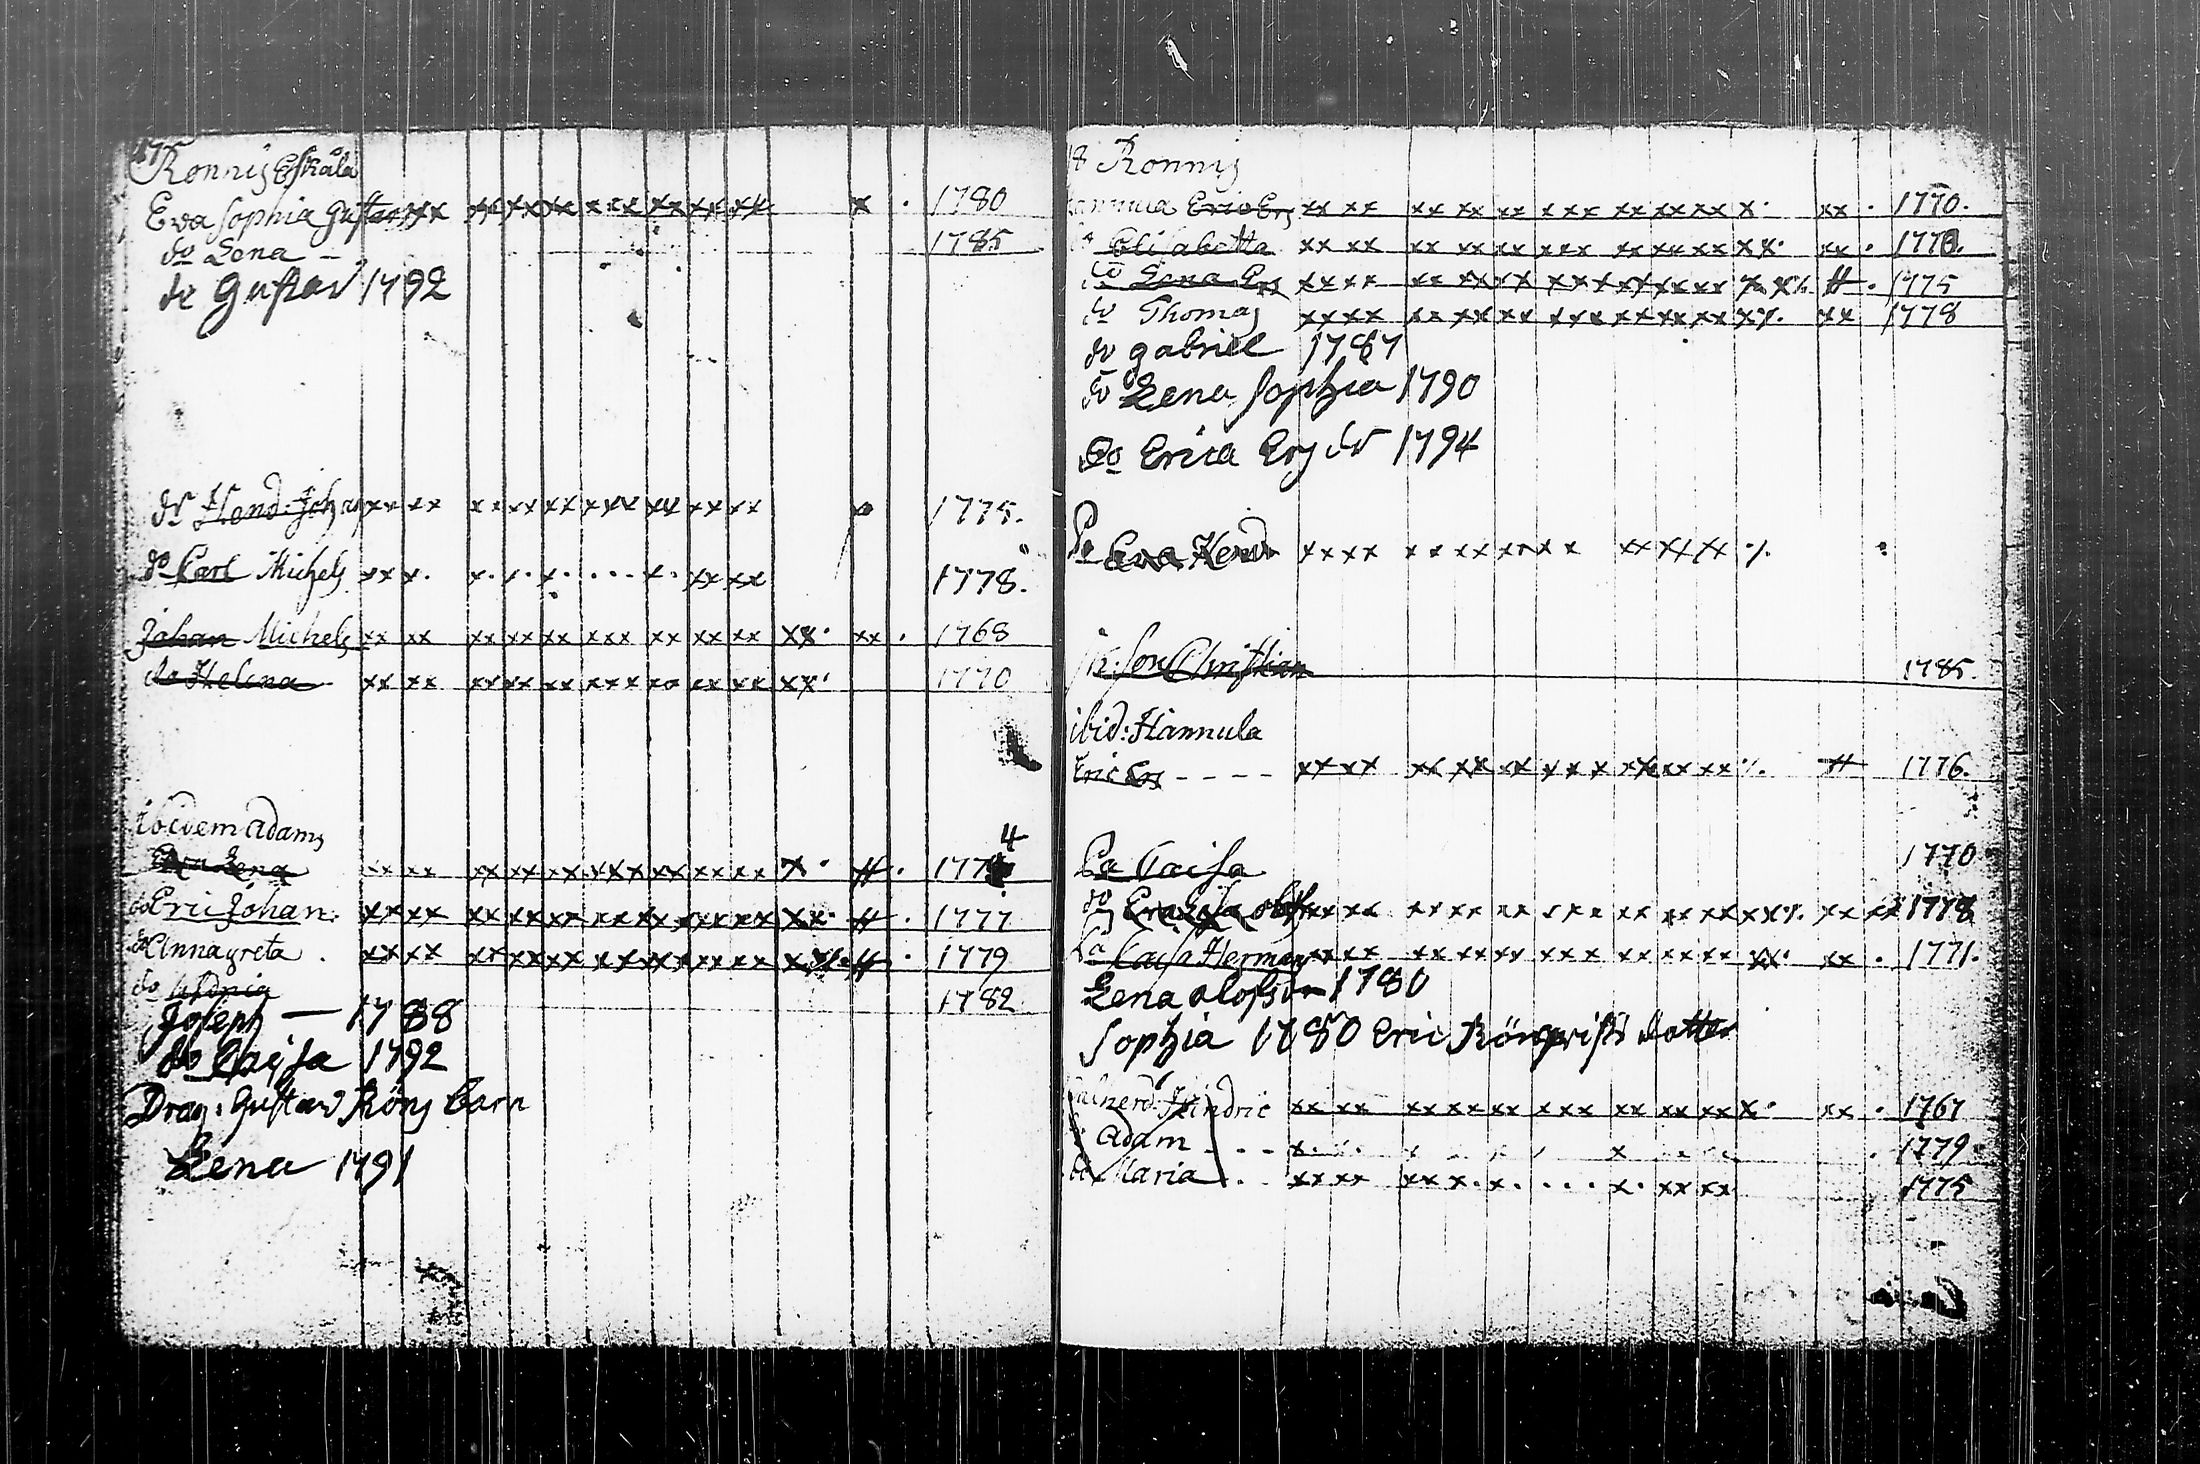 47
Ronnis Eskålä
Eva Sophia Gustavs xx xx xx xx xxx xx xx xx x . 1780
do Lena – 1785
do Gustav 1792
do Hend. Johans xx xx xx xx xx xxx xx xx xx 1775.
do Carl Michels xx x. x. x. x. ... x. xx xx 1778.
Johan Michels xx xx xx xx xx xxx xx xx xx xx. xx . 1768
do Helena xx xx xx xx xx xxx xx xx xx xx. 1770
ibidem Adams
Lena xx xx xx xx xx xxx xx xx xx x. # . 177 4
do Eric Johan. xx xx xx xx xx xxx xx xx xx xx. # . 1777
do Annagreta . xx xx xx xx xx xxx xx xx xx # . 1779
do Udnia 1782
Joseph — 1788
do Caisa 1792
Drag. Gustav Röns barn
Lena 1791
18 Ronnis
Eric Ers xx xx xx xx xx xxx xx xx xx x. xx . 1770.
Elisabetta xx xx xx xx xx xxx xx xx xx xx. xx .
do Lena Ers xx xx xx xx xx xxx xx xx xx # . 1775
do Thomas xx xx xx xx xx xxx xx xx xx x%. xx 1778
do gabriel 1787
do Lena Sophia 1790
do Erica Ers dr 1794
Pa Eva Hend xx xx xx xx xx xx xx xx xx %.
Son Christian 1785.
ibid: Hannula
Eric Ers - - - - xx xx xx xx xx xxx xx xx xx %. # 1776.
Pa Caisa 1770
do Eva Lisa olofs xx xx xx xx xx xxx xx xx xx xx%. xx xx 1778
Pa Caisa Hermans xx xx xx xx xx xxx xx xx xx xx. xx . 1771.
Lena olofsdr 1780
Sophia 1780 Eric Rönqvists dotter
Hindric xx xx xx xx xx xxx xx xx xx x. xx . 1767
Adam . - - 1779.
do Maria . . xx xx xx x. x. ... x. xx xx 1775